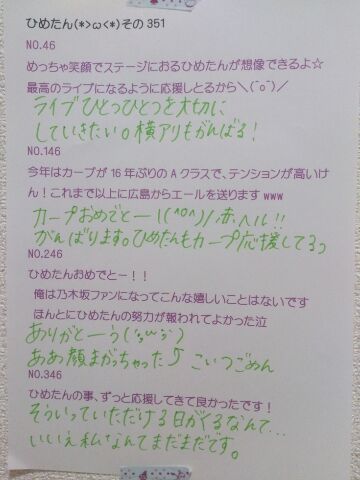 ひめたん(*>ω<*)その351
NO.46
めっちゃ笑顔でステージにおるひめたんが想像できるよ☆
最高のライブになるように応援しとるから＼(^o^)／
ライブひとつひとつを大切に
していきたい。横アリもがんばる！
NO.146
今年はカープが16年ぶりのAクラスで、テンションが高いけ
ん！これまで以上に広島からエールを送りますwww
カープおめでとー！(^o^)/赤ヘル!!
がんばります。ひめたんもカープ応援してるっ
NO.246
ひめたんおめでとー！！
俺は乃木坂ファンになってこんな嬉しいことはないです
ほんとにひめたんの努力が報われてよかった泣
ありがとーう(´;ω;`)
ああ顔まがっちゃった こいつごめん
NO.346
ひめたんの事、ずっと応援してきて良かったです！
そういっていただける日がくるなんて…
いいえ私なんてまだまだです。